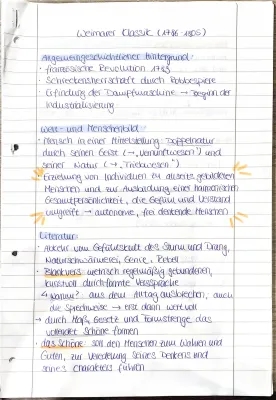 Weimarer Classik (1786 - 1805)
Allgemeingeschichtlicher Hintergrund:
· französische Revolution 1789
· Schreckensherrschaft durch Robbespiere
· Erfindung der Dampfmaschine → Beginn der
Industrialisierung
Welt- und Menschenbild
· Mensch in einer Mittelstellung: Doppelnatur
durch seinen Geist (→ „Vernunftwesen") und
seiner Natur (→ „Triebwesen")
· Erziehung von Individuen zu allseits gebildeten
Menschen und zur Ausbildung einer harmonischen
Gesamtpersönlichkeit, die Gefühl und Verstand
umgreift → autonome, frei denkende Menschen
Literatur
· Abkehr vom Gefühlskult des Sturm und Drang,
Naturschwärmerei, Genie, Rebell
· Blankvers: metrisch regelmäßig gebundenen,
kunstvoll durchformte Verssprache
↳ Warum? aus dem Alltag ausbrechen, auch
die Sprechweise → erst dann wertvoll
→ durch Maß, Gesetz und Formstrenge das
vollendet Schöne formen
· das Schöne soll den Menschen zum Wahren und
Guten, zur Veredelung seines Denkens und
seines Charakters führen